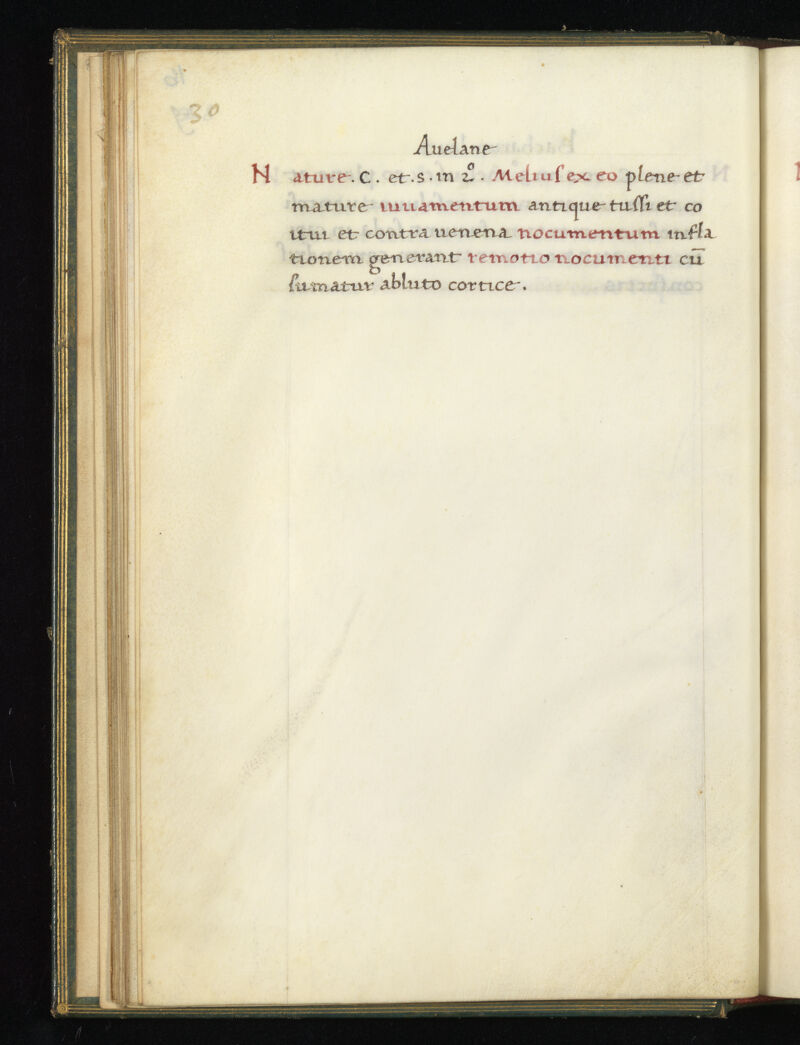 30
Auelane
Nature. C. et. s. in 2º. Meliuſ ex eo plene et
mature iuuamentum antique tuſſi et co
itui et contra uenena nocumentum infla
tionem generant remotio nocumenti cū
ſumatur abluto cortice.